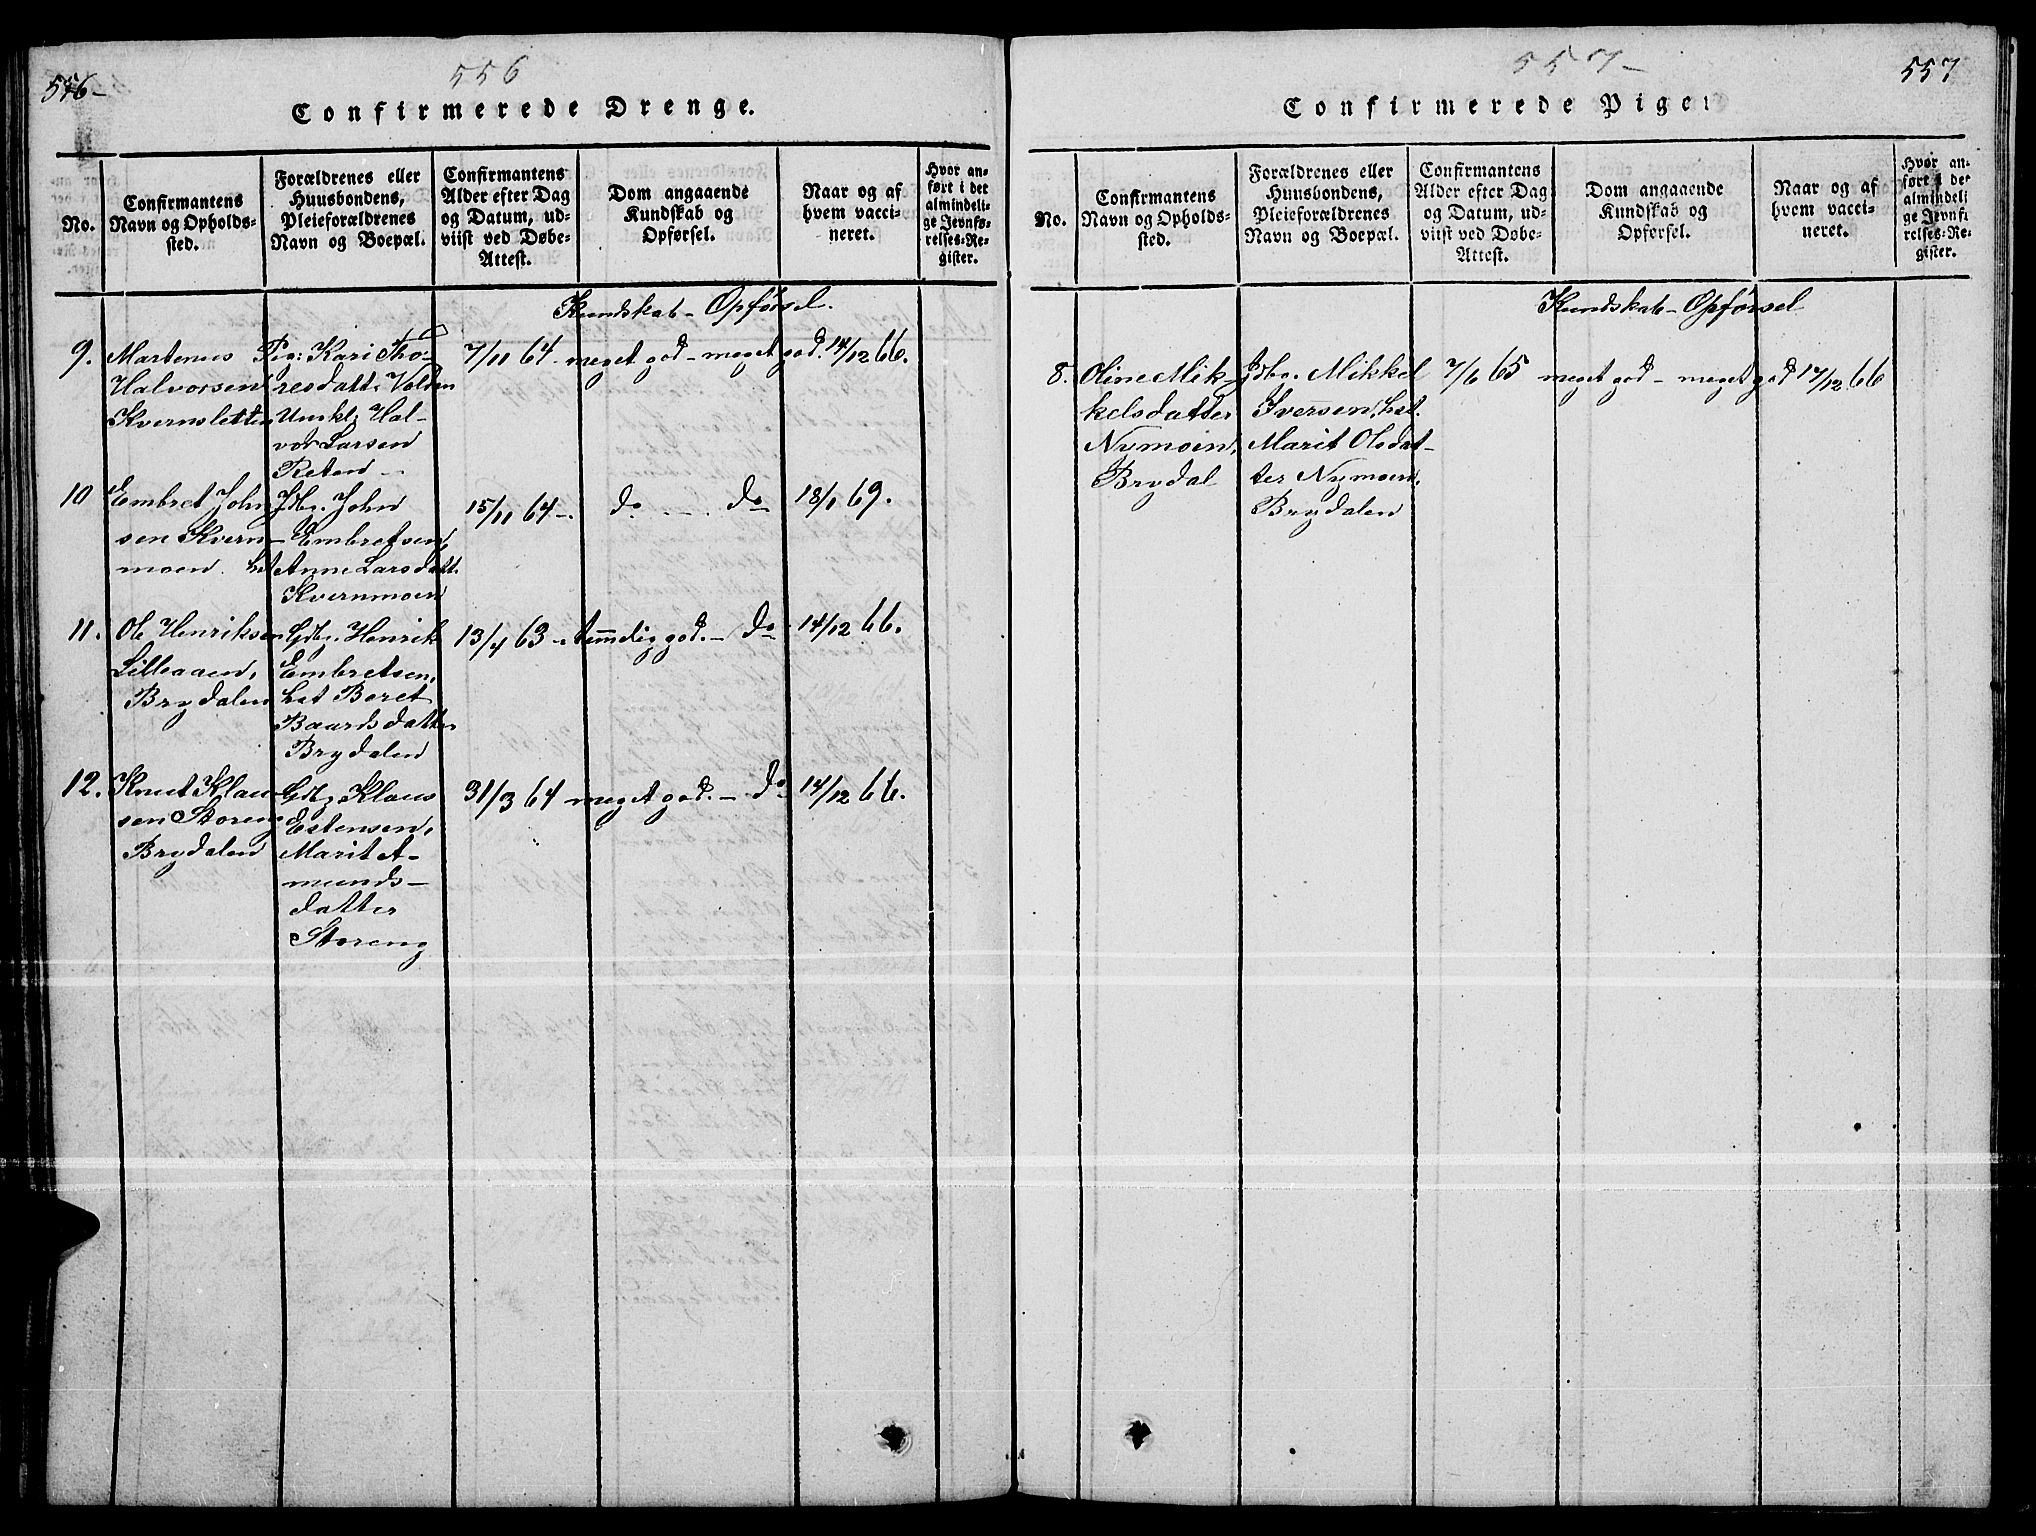 556-
556
Confirmerede Drenge.
No.
Confirmantens
Navn og Opholds-
sted.
Forældrenes eller
Huusbondens,
Pleieforældrenes
Navn og Boepæl.
Confirmantens
Alder efter Dag
og Datum, ud-
viist ved Døbe-
Attest.
Dom angaaende
Kundskab og
Opførsel.
Naar og af
hvem vacci-
neret.
Hvor an-
ført i det
almindeli-
ge Jevnfø-
relses-Re-
gister.
Kundskab - Opførsel.
9.
Martenus
Halvorsen
Kvernsletten
Pig: Kari Tho-
resdatt. Volden
Umkl: Hal-
vor Larsen
Reten
7/11 64 - meget god - meget god. 14/12 66.
10
Embret John
sen Kvern-
moen.
Gdbr. John
Embretsen,
Anne Larsdatt.
Kvernmoen
15/11 64 -. do do 18/1 69.
11.
Ole Henriksen
Lilleaaen,
Brydalen
Gdbr. Henrik
Embretsen,
Beret
Baardsdatter
Brydalen
13/4 63 - temmelig god. - do 14/12 66.
12.
Knut Klau-
sen Storeng
Brydalen
Gdbr. Klaus
Estensen,
Marit A-
munds-
datter
Storeng
31/3 64 meget god. - do 14/12 66.
557-
557
Confirmerede Piger
No.
Confirmantens
Navn og Opholds-
sted.
Forældrenes eller
Huusbondens,
Pleieforældrenes
Navn og Boepæl.
Confirmantens
Alder efter Dag
og Datum, ud-
viist ved Døbe-
Attest.
Dom angaaende
Kundskab og
Opførsel.
Naar og af
hvem vacci-
neret.
Hvor an-
ført i det
almindeli
ge Jevnf:
relses-Re-
gister.
Kundskab - Opførsel
8.
Oline Mik-
kelsdatter
Nymoen,
Brydal
Gdbr. Mikkel
Iversen,
Marit Olsdat-
ter Nymoen,
Brydalen
7/6 65 meget god - meget god 14/12 66